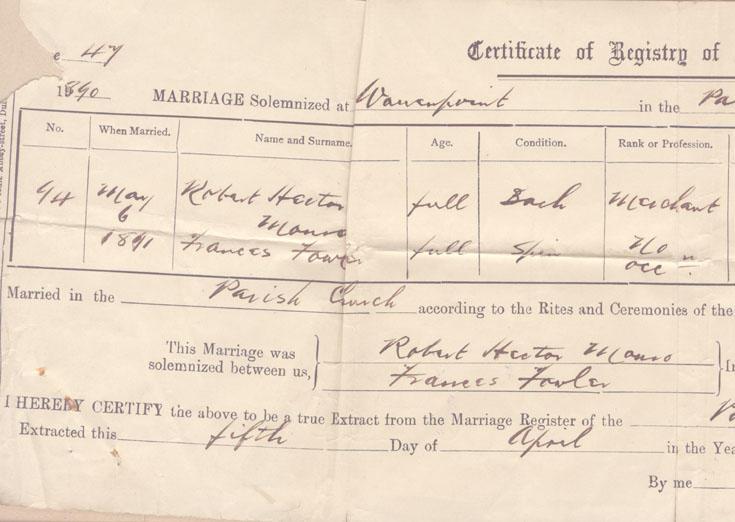 e 47
Certificate of Registry of
1890 MARRIAGE Solemnized at Warrenpoint in the Pa
No. When Married. Name and Surname. Age. Condition. Rank or Profession.
94 May 6 1891 Robert Hector Monro full Bach Merchant
Frances Fowler full Spin No occn.
Married in the Parish Church according to the Rites and Ceremonies of the
This Marriage was
solemnized between us,
Robert Hector Monro
Frances Fowler
In
I HEREBY CERTIFY the above to be a true Extract from the Marriage Register of the
Extracted this fifth Day of April in the Yea
By me